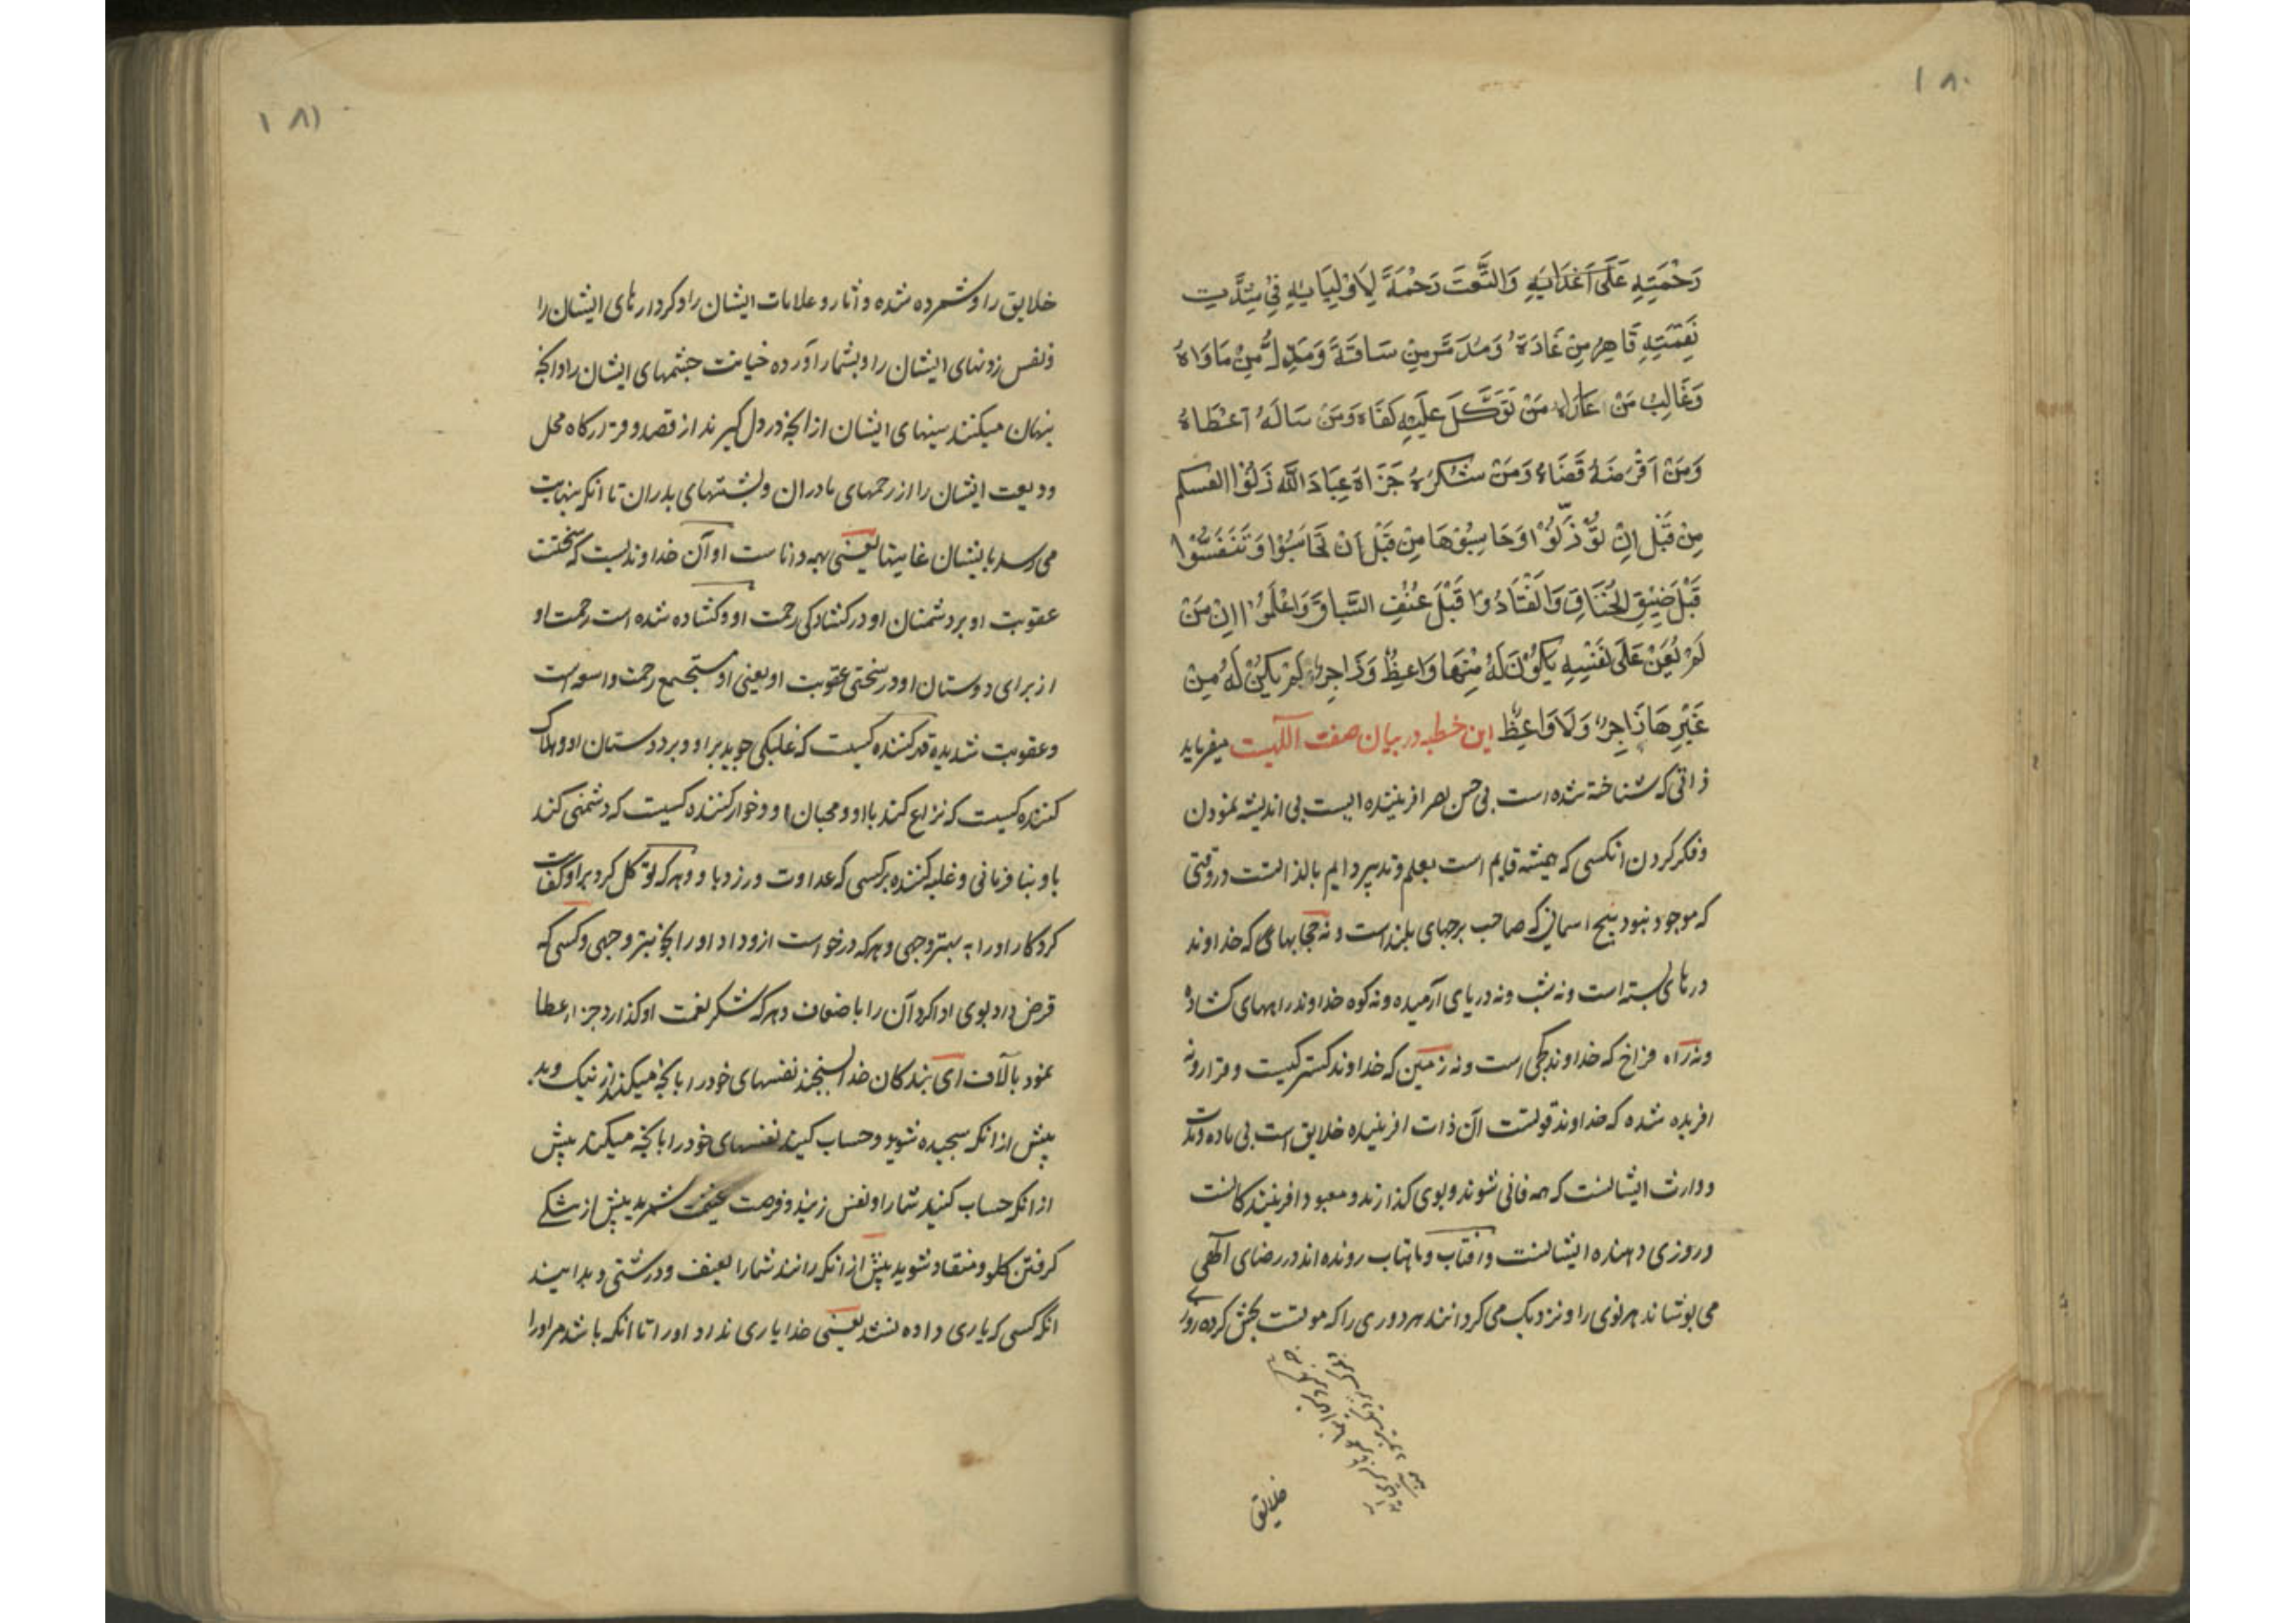 ١٨٠
رَحْمَتِهِ عَلَى اَعْدَائِهِ وَاتَّسَعَتْ رَحْمَةً لِاَوْلِيَائِهِ فِي شِدَّتِ
نَقِمَتِهِ قَاهِرُ مِنْ عَادَهُ وَمُدَمِّرٌ مِنْ سَاقَهُ وَمُذِلُّ مِنْ مَاوَاهُ
وَغَالِبُ مَنْ عَازَاه مَنْ تَوَكَّلَ عَلَيْهِ كَفَاه وَمَنْ سَالَهُ اَعْطَاهُ
وَمَنْ اَقْرَضَهُ قَضَاهُ وَمَنْ شَكَرَهُ جَزَاهُ عِبَادَ اللَّهِ زِنُوْا انفسكم
مِنْ قَبْلِ اِنْ تُوْزَنُوْا وَحَاسِبُوْهَا مِنْ قَبْلِ اَنْ تُحَاسَبُوْا وَتَنَفَسُّوْا
قَبْلَ ضِيْقِ الْخُنَاقِ وَانْقَادُوْا قَبْلَ عُنُفِ السِّيَاقِ وَاعْلَمُوْا اِنْ مَنْ
لَمْ يُعَنْ عَلَى نَفْسِهِ يَكُوْنَ لَهُ مِنْهَا وَاعِظٌ وَزَاجِرٌ لَمْ يَكُنْ لَهُ مِنْ
غَيْرِهَا زَاجِرٌ وَلَا وَاعِظٌ این خطبه در بیان صفت آلهیت میفرماید
ذاتی که شناخته شده است بی حس بصر افریننده ایست بی اندیشه نمودن
وفکر کردن انکسی که همیشه قایم است بعلم وتدبیر دایم بالذاتست در وقتی
که موجود نبود هیچ اسمانی که صاحب برجهای بلند است ونه حجابهای که خداوند
درهای بسته است ونه شب ونه دریای آرمیده ونه کوه خداوند راههای کشاده
ونه راه فراخ که خداوند کجی است ونه زمین که خداوند کستر کیست وقرار ونه
افریده شده که خداوند قوتست آن ذات افریننده خلایق است بی ماده ومدت
ووارث ایشانست که همه فانی شوند وبوی کذارند ومعبود افرینندکانست
وروزی دهنده ایشانست وافتاب وماهتاب رونده اند در رضای آلهی
می پوشاند هر نوی را ونزدیک می کردانند هر دوری را که موتست بخش کرده روزی
خلایق
١٨١
خلایق را وشمرده شده واثار وعلامات ایشان را وکردارهای ایشان را
ونفس زدنهای ایشان را وبشمار آورده خیانت چشمهای ایشان را وانچه
پنهان میکنند سینهای ایشان از انچه در دل کیرند از قصد وقرارکاه محل
ودیعت ایشان را از رحمهای مادران وپشتهای پدران تا انکه بنهایت
می رسد بایشان غایتها یعنی بهمه داناست او آن خداوندیست که سختست
عقوبت او بر دشمنان او در کشادکی رحمت او وکشاده شده است رحمت او
از برای دوستان او در سختی عقوبت او یعنی او مستجمع رحمت واسعه است
وعقوبت شدیده قهر کننده کسیست که غلبکی جوید بر او وبر دوستان او وهلاک
کننده کسیست که نزاع کند با او ومحبان او وخوار کننده کسیست که دشمنی کند
باو بنافرمانی وغلبه کننده برکسی که عداوت ورزد با او وهرکه توکل کرد براو کفایت
کرد کار او را به بهتر وجهی وهرکه درخواست ازو داد او را بچه بهتر وجهی وکسی که
قرض داد بوی ادا کرد آن را باضعاف وهرکه شکر نعمت او کذارد جزا عطا
نمود بآلاف ای بندکان خدا بسنجید نفسهای خود را بانچه میکنند از نیک وبد
پیش از انکه سنجیده شوید وحساب کنید نفسهای خود را بانچه میکنند پیش
از انکه حساب کنند شما را ونفس زنید وفرصت غنیمت شمرید پیش از تنکی
کرفتن کلو ومنقاد شوید پیش از انکه رانند شما را بعنف ودرشتی وبدانید
انکه کسی که یاری داده نشد یعنی خدا یاری نداد او را تا انکه باشد مر او را